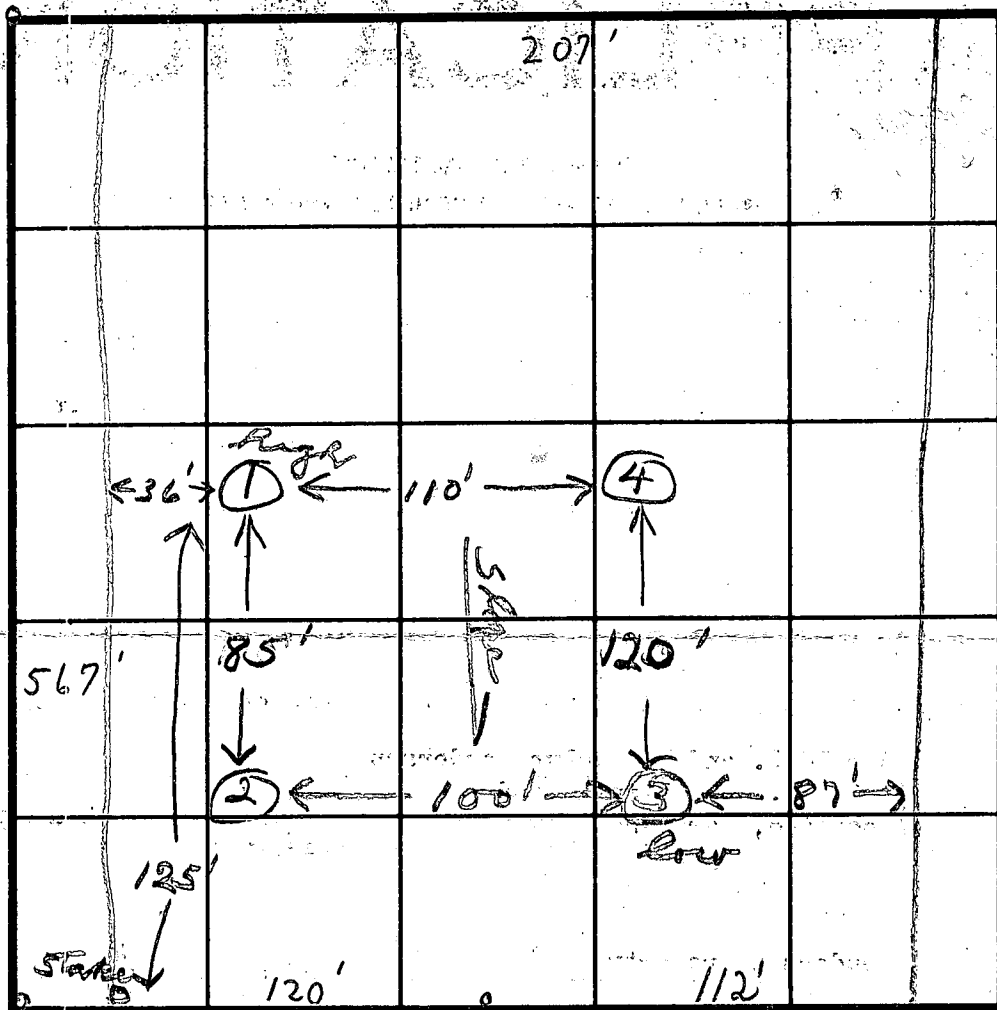 207'
High
36' 1 110' 4
Slope
567' 85' 120'
2 100' 3 87'
low
125'
Stake
120' 112'